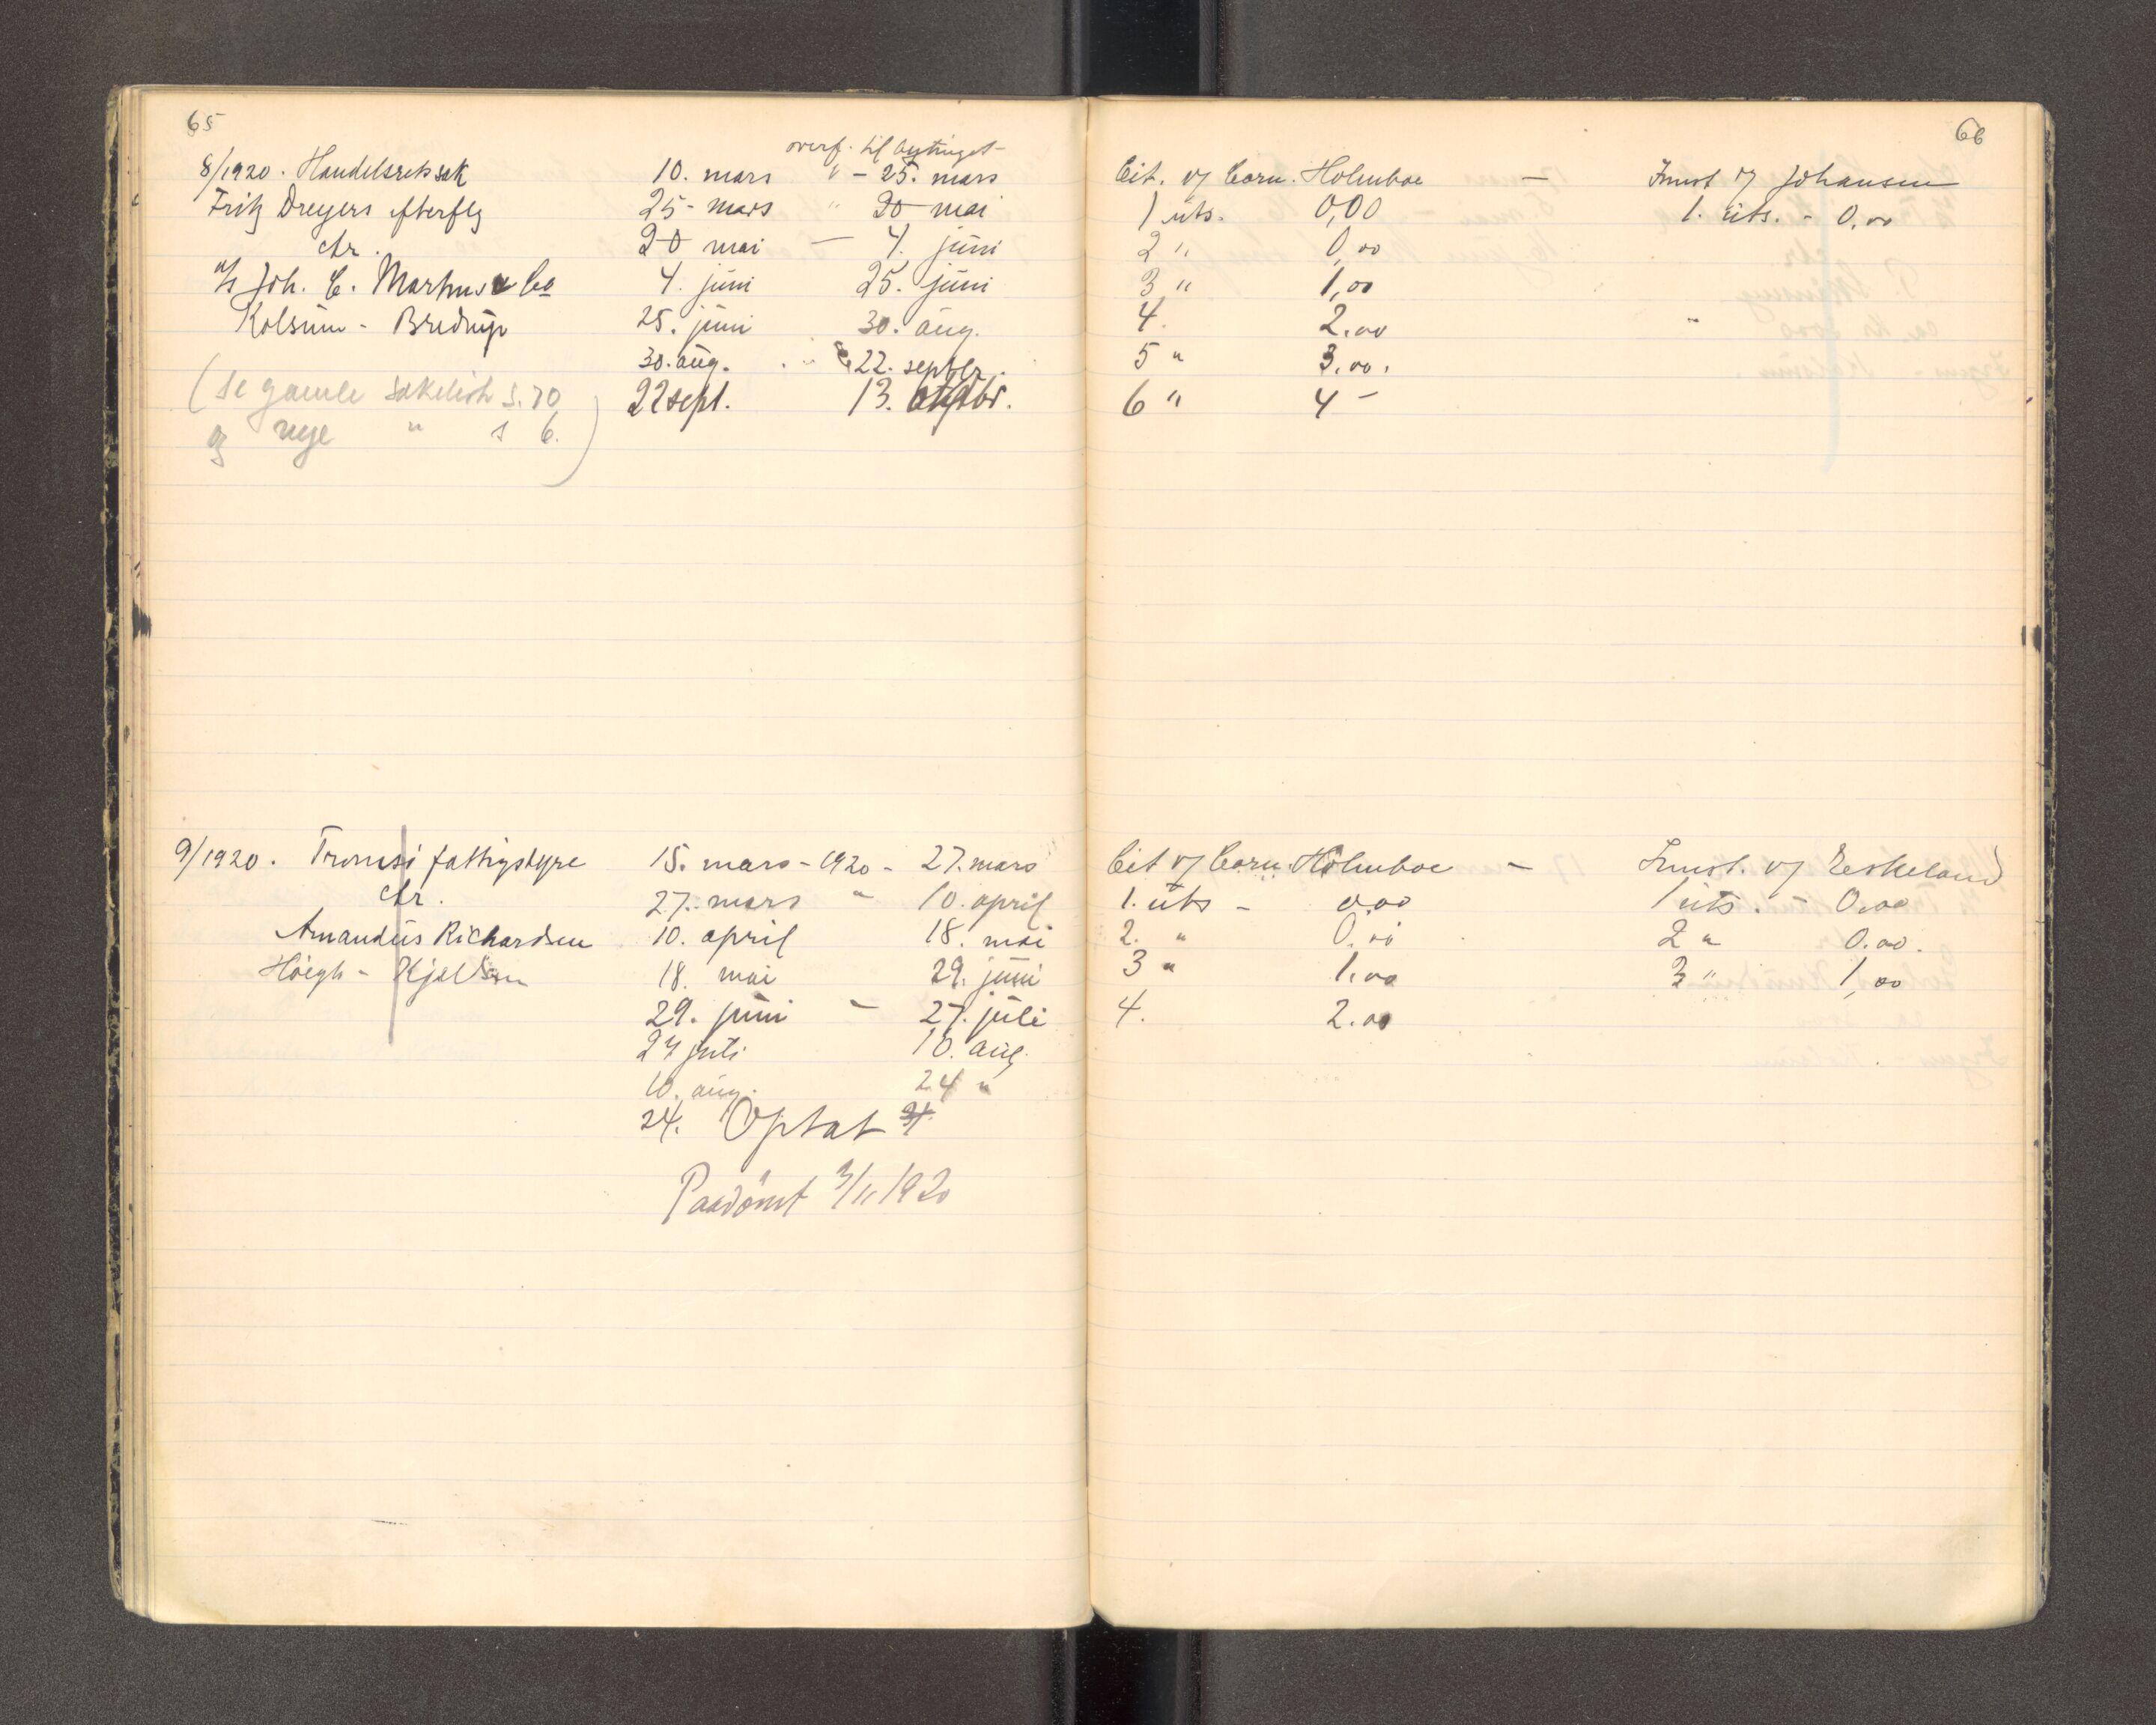 65
overf. til bytinget
8/1920. Handelsretssak 10. mars " - 25. mars
Fritz Dreyers efterflg 25- mars " 20 mai
ctr. 20 mai — 4. juni
a/s Joh. C. Martens & Co 4. juni 25. juni
Kolsum - Bredrup 25. juni 30. aug.
30. aug. 22. septbr.
(se gamle sakeliste s. 70 22 sept. 13. oktobr.
og nye " s 6.)
9/1920. Tromsö fattigstyre 15. mars - 1920 - 27. mars
ctr. 27. mars " 10. april
Amandus Richardsen 10. april 18. mai
Höegh - Kjeldsen 18. mai 29. juni
29. juni — 27. juli
27 juli 10. aug.
10. aug. 24 "
24. Optat
Paadömt 3/11 1920
66
Cit. v/ Corn. Holmboe — Innst v/ Johansen
1 uts. 0,00 1. uts. - 0,00
2 " 0,00
3 " 1,00
4. 2.00
5 " 3.00.
6 " 4 -
Cit v/ Corn. Holmboe — Innst. v/ Eskeland
1. uts - 0,00 1 uts. - 0.00
2. " 0.00 2 " 0.00.
3 " 1.00 3 " 1,00
4. 2.00